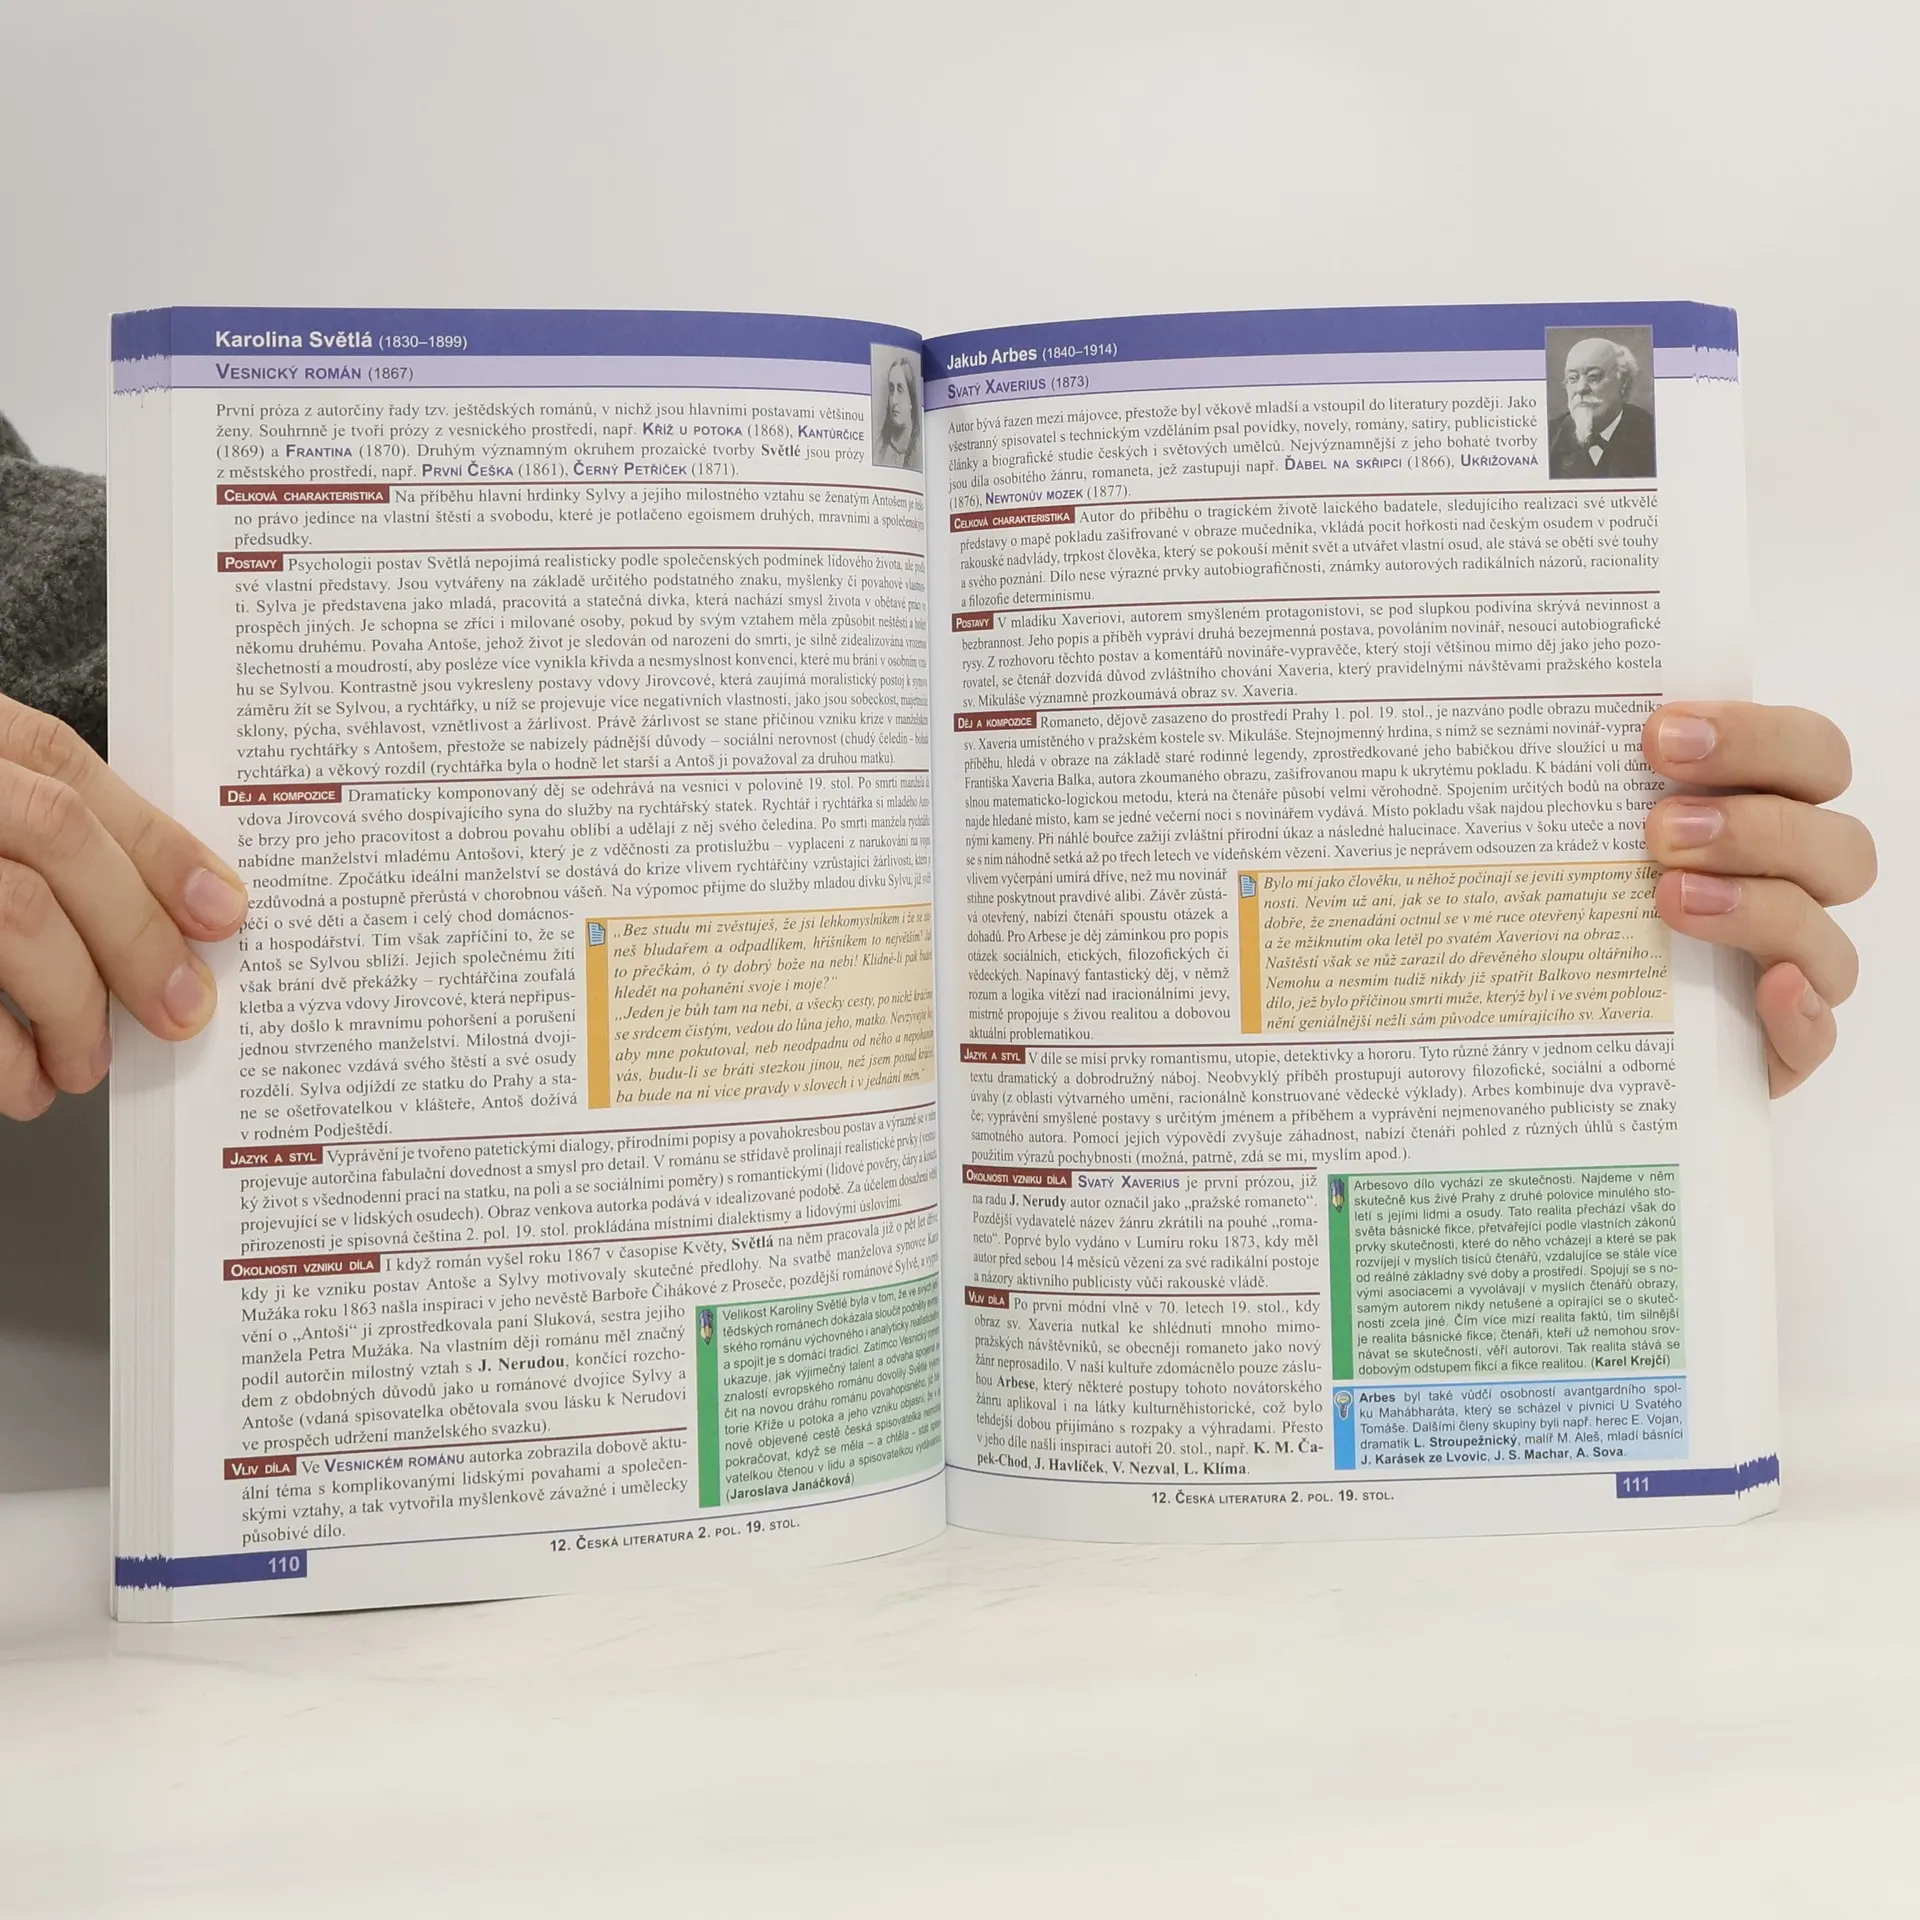 Karolina Světlá (1830–1899)
VESNICKÝ ROMÁN (1867)
První próza z autorčiny řady tzv. ještědských románů, v nichž jsou hlavními postavami většinou
ženy. Souhrnně je tvoří prózy z vesnického prostředí, např. KŘÍŽ U POTOKA (1868), KANTŮRČICE
(1869) a FRANTINA (1870). Druhým významným okruhem prozaické tvorby Světlé jsou prózy
z městského prostředí, např. PRVNÍ ČEŠKA (1861), ČERNÝ PETŘÍČEK (1871).
CELKOVÁ CHARAKTERISTIKA Na příběhu hlavní hrdinky Sylvy a jejího milostného vztahu se ženatým Antošem je
no právo jedince na vlastní štěstí a svobodu, které je potlačeno egoismem druhých, mravními a společenskými
předsudky.
POSTAVY Psychologii postav Světlá nepojímá realisticky podle společenských podmínek lidového života, ale podle
své vlastní představy. Jsou vytvářeny na základě určitého podstatného znaku, myšlenky či povahové vlastnos-
ti. Sylva je představena jako mladá, pracovitá a statečná dívka, která nachází smysl života v obětavé práci ve
prospěch jiných. Je schopna se zříci i milované osoby, pokud by svým vztahem měla způsobit neštěstí a bolest
někomu druhému. Povaha Antoše, jehož život je sledován od narození do smrti, je silně zidealizována vrozenou
šlechetností a moudrostí, aby posléze více vynikla křivda a nesmyslnost konvencí, které mu brání v osobním vzta-
hu se Sylvou. Kontrastně jsou vykresleny postavy vdovy Jirovcové, která zaujímá moralistický postoj k synovu
záměru žít se Sylvou, a rychtářky, u níž se projevuje více negativních vlastností, jako jsou sobeckost, majetnické
sklony, pýcha, svéhlavost, vznětlivost a žárlivost. Právě žárlivost se stane příčinou vzniku krize v manželském
vztahu rychtářky s Antošem, přestože se nabízely pádnější důvody – sociální nerovnost (chudý čeledín – bohatá
rychtářka) a věkový rozdíl (rychtářka byla o hodně let starší a Antoš ji považoval za druhou matku).
DĚJ A KOMPOZICE Dramaticky komponovaný děj se odehrává na vesnici v polovině 19. stol. Po smrti manžela dá
vdova Jirovcová svého dospívajícího syna do služby na rychtářský statek. Rychtář i rychtářka si mladého Anto-
še brzy pro jeho pracovitost a dobrou povahu oblíbí a udělají z něj svého čeledína. Po smrti manžela rychtářka
nabídne manželství mladému Antošovi, který je z vděčnosti za protislužbu – vyplacení z narukování na vojnu
– neodmítne. Zpočátku ideální manželství se dostává do krize vlivem rychtářčiny vzrůstající žárlivosti, která je
bezdůvodná a postupně přerůstá v chorobnou vášeň. Na výpomoc přijme do služby mladou dívku Sylvu, jíž svěří
péči o své děti a časem i celý chod domácnos-
ti a hospodářství. Tím však zapříčiní to, že se
Antoš se Sylvou sblíží. Jejich společnému žití
však brání dvě překážky – rychtářčina zoufalá
kletba a výzva vdovy Jirovcové, která nepřipus-
tí, aby došlo k mravnímu pohoršení a porušení
jednou stvrzeného manželství. Milostná dvoji-
ce se nakonec vzdává svého štěstí a své osudy
rozdělí. Sylva odjíždí ze statku do Prahy a sta-
ne se ošetřovatelkou v klášteře, Antoš dožívá
v rodném Podještědí.
„Bez studu mi zvěstuješ, že jsi lehkomyslníkem i že se
neš bludařem a odpadlíkem, hříšníkem to největším? Jak
to přečkám, ó ty dobrý bože na nebi! Klidně-li pak budeš
hledět na pohanění svoje i moje?“
„Jeden je bůh tam na nebi, a všecky cesty, po nichž kráčíme
se srdcem čistým, vedou do lůna jeho, matko. Nevzývejte ho,
aby mne pokutoval, neb neodpadnu od něho a nepohaním
vás, budu-li se bráti stezkou jinou, než jsem posud kráčel,
ba bude na ní více pravdy v slovech i v jednání mém.“
JAZYK A STYL Vyprávění je tvořeno patetickými dialogy, přírodními popisy a povahokresbou postav a výrazně se v něm
projevuje autorčina fabulační dovednost a smysl pro detail. V románu se střídavě prolínají realistické prvky (vesnic-
ký život s všednodenní prací na statku, na poli a se sociálními poměry) s romantickými (lidové pověry, čáry a kouzla
projevující se v lidských osudech). Obraz venkova autorka podává v idealizované podobě. Za účelem dosažení větší
přirozenosti je spisovná čeština 2. pol. 19. stol. prokládána místními dialektismy a lidovými úslovími.
OKOLNOSTI VZNIKU DÍLA I když román vyšel roku 1867 v časopise Květy, Světlá na něm pracovala již o pět let dříve,
kdy ji ke vzniku postav Antoše a Sylvy motivovaly skutečné předlohy. Na svatbě manželova synovce Karla
Mužáka roku 1863 našla inspiraci v jeho nevěstě Barboře Čihákové z Proseče, pozdější románové Sylvě, a vyprá-
vění o „Antoši“ jí zprostředkovala paní Sluková, sestra jejího
manžela Petra Mužáka. Na vlastním ději románu měl značný
podíl autorčin milostný vztah s J. Nerudou, končící rozcho-
dem z obdobných důvodů jako u románové dvojice Sylvy a
Antoše (vdaná spisovatelka obětovala svou lásku k Nerudovi
ve prospěch udržení manželského svazku).
VLIV DÍLA Ve VESNICKÉM ROMÁNU autorka zobrazila dobově aktu-
ální téma s komplikovanými lidskými povahami a společen-
skými vztahy, a tak vytvořila myšlenkově závažné i umělecky
působivé dílo.
Velikost Karoliny Světlé byla v tom, že ve svých ješ-
tědských románech dokázala sloučit podněty evrop-
ského románu výchovného i analyticky realistického
a spojit je s domácí tradicí. Zatímco Vesnický román
ukazuje, jak výjimečný talent a odvaha spojená se
znalostí evropského románu dovolily Světlé vykro-
čit na novou dráhu románu povahopisného, již his-
torie Kříže u potoka a jeho vzniku objasní, že v
nově objevené cestě česká spisovatelka nemohla
pokračovat, když se měla – a chtěla – stát spiso-
vatelkou čtenou v lidu a spisovatelkou vydávanou.
(Jaroslava Janáčková)
12. ČESKÁ LITERATURA 2. POL. 19. STOL.
110
Jakub Arbes (1840–1914)
SVATÝ XAVERIUS (1873)
Autor bývá řazen mezi májovce, přestože byl věkově mladší a vstoupil do literatury později. Jako
všestranný spisovatel s technickým vzděláním psal povídky, novely, romány, satiry, publicistické
články a biografické studie českých i světových umělců. Nejvýznamnější z jeho bohaté tvorby
jsou díla osobitého žánru, romaneta, jež zastupují např. ĎÁBEL NA SKŘIPCI (1866), UKŘIŽOVANÁ
(1876), NEWTONŮV MOZEK (1877).
CELKOVÁ CHARAKTERISTIKA Autor do příběhu o tragickém životě laického badatele, sledujícího realizaci své utkvělé
představy o mapě pokladu zašifrované v obraze mučedníka, vkládá pocit hořkosti nad českým osudem v područí
rakouské nadvlády, trpkost člověka, který se pokouší měnit svět a utvářet vlastní osud, ale stává se obětí své touhy
a svého poznání. Dílo nese výrazné prvky autobiografičnosti, známky autorových radikálních názorů, racionality
a filozofie determinismu.
POSTAVY V mladíku Xaveriovi, autorem smyšleném protagonistovi, se pod slupkou podivína skrývá nevinnost a
bezbrannost. Jeho popis a příběh vypráví druhá bezejmenná postava, povoláním novinář, nesoucí autobiografické
rysy. Z rozhovoru těchto postav a komentářů novináře-vypravěče, který stojí většinou mimo děj jako jeho pozo-
rovatel, se čtenář dozvídá důvod zvláštního chování Xaveria, který pravidelnými návštěvami pražského kostela
sv. Mikuláše významně prozkoumává obraz sv. Xaveria.
DĚJ A KOMPOZICE Romaneto, dějově zasazeno do prostředí Prahy 1. pol. 19. stol., je nazváno podle obrazu mučedníka
sv. Xaveria umístěného v pražském kostele sv. Mikuláše. Stejnojmenný hrdina, s nímž se seznámí novinář-vypra
příběhu, hledá v obraze na základě staré rodinné legendy, zprostředkované jeho babičkou dříve sloužící u ma
Františka Xaveria Balka, autora zkoumaného obrazu, zašifrovanou mapu k ukrytému pokladu. K bádání volí důmy
slnou matematicko-logickou metodu, která na čtenáře působí velmi věrohodně. Spojením určitých bodů na obraze
najde hledané místo, kam se jedné večerní noci s novinářem vydává. Místo pokladu však najdou plechovku s barev-
nými kameny. Při náhlé bouřce zažijí zvláštní přírodní úkaz a následné halucinace. Xaverius v šoku uteče a novi
se s ním náhodně setká až po třech letech ve vídeňském vězení. Xaverius je neprávem odsouzen za krádež v koste
vlivem vyčerpání umírá dříve, než mu novinář
stihne poskytnout pravdivé alibi. Závěr zůstá-
vá otevřený, nabízí čtenáři spoustu otázek a
dohadů. Pro Arbese je děj záminkou pro popis
otázek sociálních, etických, filozofických či
vědeckých. Napínavý fantastický děj, v němž
rozum a logika vítězí nad iracionálními jevy,
mistrně propojuje s živou realitou a dobovou
aktuální problematikou.
Bylo mi jako člověku, u něhož počínají se jeviti symptomy šíle-
nosti. Nevím už ani, jak se to stalo, avšak pamatuju se zcel
dobře, že znenadání octnul se v mé ruce otevřený kapesní nů
a že mžiknutím oka letěl po svatém Xaveriovi na obraz…
Naštěstí však se nůž zarazil do dřevěného sloupu oltářního…
Nemohu a nesmím tudíž nikdy již spatřit Balkovo nesmrtelné
dílo, jež bylo příčinou smrti muže, kterýž byl i ve svém poblouz-
nění geniálnější nežli sám původce umírajícího sv. Xaveria.
JAZYK A STYL V díle se mísí prvky romantismu, utopie, detektivky a hororu. Tyto různé žánry v jednom celku dávají
textu dramatický a dobrodružný náboj. Neobvyklý příběh prostupují autorovy filozofické, sociální a odborné
úvahy (z oblasti výtvarného umění, racionálně konstruované vědecké výklady). Arbes kombinuje dva vypravě-
če; vyprávění smyšlené postavy s určitým jménem a příběhem a vyprávění nejmenovaného publicisty se znaky
samotného autora. Pomocí jejich výpovědí zvyšuje záhadnost, nabízí čtenáři pohled z různých úhlů s častým
použitím výrazů pochybnosti (možná, patrně, zdá se mi, myslím apod.).
OKOLNOSTI VZNIKU DÍLA SVATÝ XAVERIUS je první prózou, již
na radu J. Nerudy autor označil jako „pražské romaneto“.
Pozdější vydavatelé název žánru zkrátili na pouhé „roma-
neto“. Poprvé bylo vydáno v Lumíru roku 1873, kdy měl
autor před sebou 14 měsíců vězení za své radikální postoje
a názory aktivního publicisty vůči rakouské vládě.
VLIV DÍLA Po první módní vlně v 70. letech 19. stol., kdy
obraz sv. Xaveria nutkal ke shlédnutí mnoho mimo-
pražských návštěvníků, se obecněji romaneto jako nový
žánr neprosadilo. V naší kultuře zdomácnělo pouze záslu-
hou Arbese, který některé postupy tohoto novátorského
žánru aplikoval i na látky kulturněhistorické, což bylo
tehdejší dobou přijímáno s rozpaky a výhradami. Přesto
v jeho díle našli inspiraci autoři 20. stol., např. K. M. Ča-
pek-Chod, J. Havlíček, V. Nezval, L. Klíma.
Arbesovo dílo vychází ze skutečnosti. Najdeme v něm
skutečně kus živé Prahy z druhé polovice minulého sto-
letí s jejími lidmi a osudy. Tato realita přechází však do
světa básnické fikce, přetvářející podle vlastních zákonů
prvky skutečnosti, které do něho vcházejí a které se pak
rozvíjejí v myslích tisíců čtenářů, vzdalujíce se stále více
od reálné základny své doby a prostředí. Spojují se s no-
vými asociacemi a vyvolávají v myslích čtenářů obrazy,
samým autorem nikdy netušené a opírající se o skuteč-
nosti zcela jiné. Čím více mizí realita faktů, tím silnější
je realita básnické fikce; čtenáři, kteří už nemohou srov-
návat se skutečností, věří autorovi. Tak realita stává se
dobovým odstupem fikcí a fikce realitou. (Karel Krejčí)
Arbes byl také vůdčí osobností avantgardního spol-
ku Mahábhárata, který se scházel v pivnici U Svatého
Tomáše. Dalšími členy skupiny byli např. herec E. Vojan,
dramatik L. Stroupežnický, malíř M. Aleš, mladí básníci
J. Karásek ze Lvovic, J. S. Machar, A. Sova.
12. ČESKÁ LITERATURA 2. POL. 19. STOL.
111